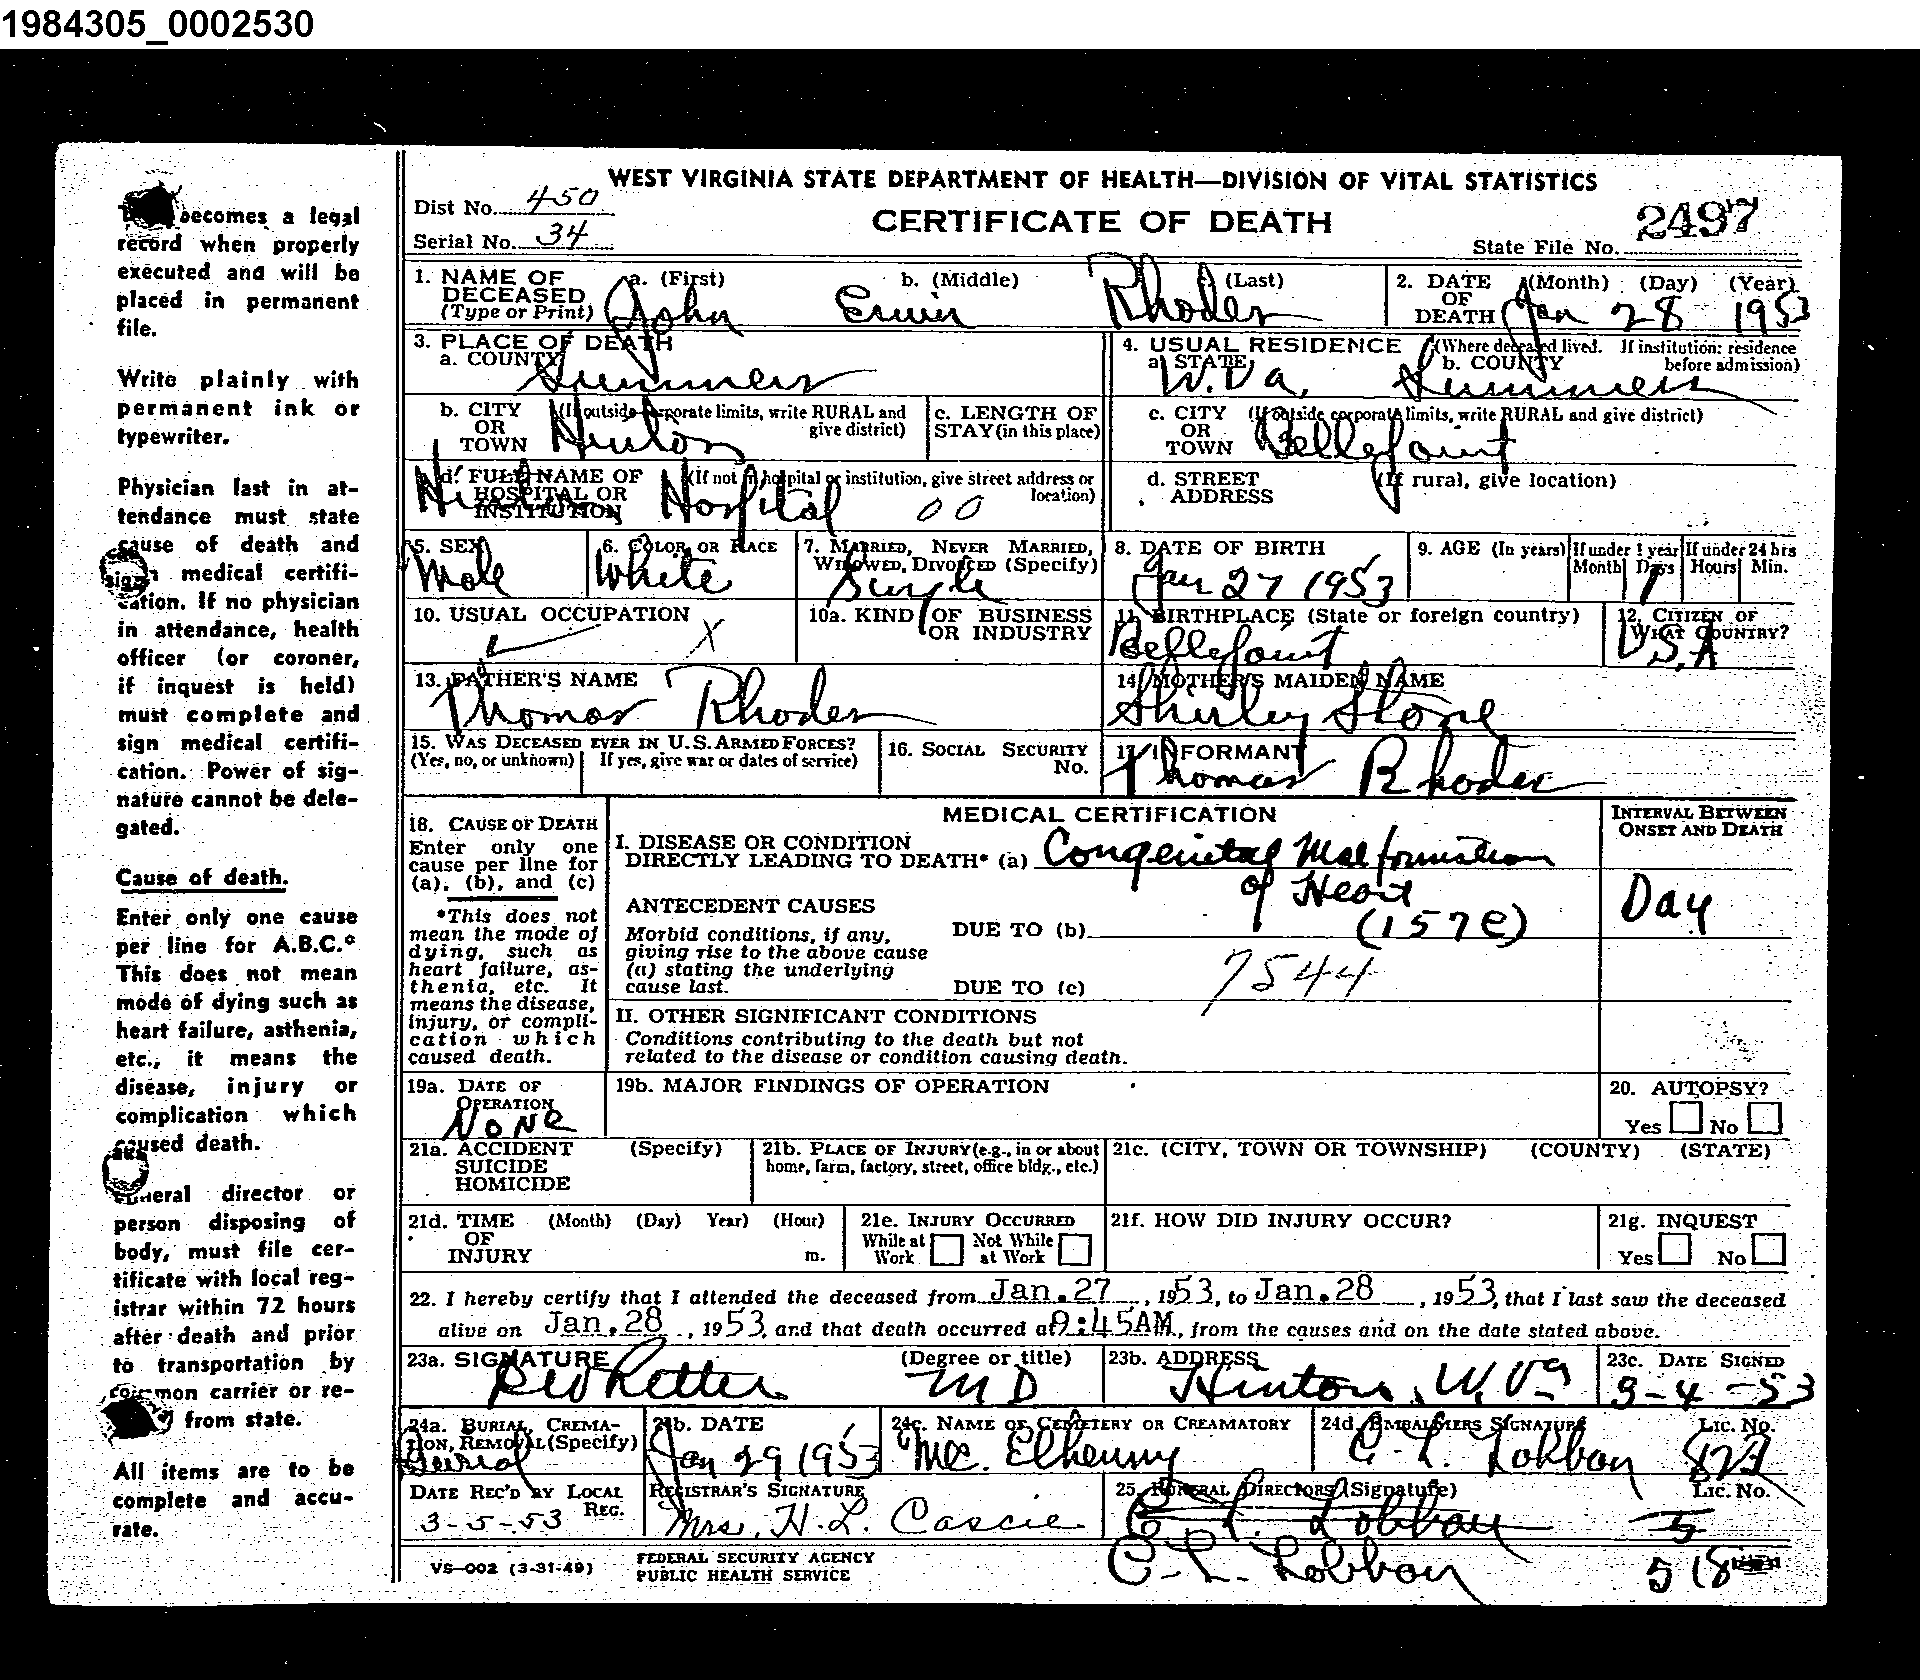 1984305_0002530
becomes a legal
record when properly
executed and will be
placed in permanent
file.
Write plainly with
permanent ink or
typewriter.
Physician last in at-
tendance must state
cause of death and
sign medical certifi-
cation. If no physician
in attendance, health
officer (or coroner,
if inquest is held)
must complete and
sign medical certifi-
cation. Power of sig-
nature cannot be dele-
gated.
Cause of death.
Enter only one cause
per line for A.B.C.*
This does not mean
mode of dying such as
heart failure, asthenia,
etc., it means the
disease, injury or
complication which
caused death.
director or
person disposing of
body, must file cer-
tificate with local reg-
istrar within 72 hours
after death and prior
to transportation by
common carrier or re-
from state.
All items are to be
complete and accu-
rate.
WEST VIRGINIA STATE DEPARTMENT OF HEALTH—DIVISION OF VITAL STATISTICS
Dist No. 450
CERTIFICATE OF DEATH
Serial No. 34
State File No. 2497
1. NAME OF DECEASED (Type or Print) a. (First) b. (Middle) c. (Last)
John Erwin Rhodes
2. DATE OF DEATH (Month) (Day) (Year)
Jan 28 1953
3. PLACE OF DEATH
a. COUNTY
Summers
4. USUAL RESIDENCE (Where deceased lived. If institution: residence before admission)
a. STATE b. COUNTY
W.Va. Summers
b. CITY OR TOWN (If outside corporate limits, write RURAL and give district)
Hinton
c. LENGTH OF STAY (in this place)
c. CITY OR TOWN (If outside corporate limits, write RURAL and give district)
Bellepoint
d. FULL NAME OF HOSPITAL OR INSTITUTION (If not in hospital or institution, give street address or location)
Hinton Hospital 00
d. STREET ADDRESS (If rural, give location)
5. SEX
Male
6. COLOR OR RACE
White
7. MARRIED, NEVER MARRIED, WIDOWED, DIVORCED (Specify)
Single
8. DATE OF BIRTH
Jan 27 1953
9. AGE (In years) If under 1 year Month Days If under 24 hrs Hours Min.
1
10. USUAL OCCUPATION
X
10a. KIND OF BUSINESS OR INDUSTRY
11. BIRTHPLACE (State or foreign country)
Bellepoint
12. CITIZEN OF WHAT COUNTRY?
U.S.A
13. FATHER'S NAME
Thomas Rhodes
14. MOTHER'S MAIDEN NAME
Shirley Stone
15. WAS DECEASED EVER IN U.S. ARMED FORCES?
(Yes, no, or unknown) If yes, give war or dates of service)
16. SOCIAL SECURITY No.
17. INFORMANT
Thomas Rhodes
18. CAUSE OF DEATH
Enter only one
cause per line for
(a), (b), and (c)
*This does not
mean the mode of
dying, such as
heart failure, as-
thenia, etc. It
means the disease,
injury, or compli-
cation which
caused death.
MEDICAL CERTIFICATION
INTERVAL BETWEEN ONSET AND DEATH
I. DISEASE OR CONDITION
DIRECTLY LEADING TO DEATH* (a) Congenital Malformation
of Heart
(157e)
Day
ANTECEDENT CAUSES
Morbid conditions, if any,
giving rise to the above cause
(a) stating the underlying
cause last.
DUE TO (b)
7544
DUE TO (c)
II. OTHER SIGNIFICANT CONDITIONS
Conditions contributing to the death but not
related to the disease or condition causing death.
19a. DATE OF OPERATION
None
19b. MAJOR FINDINGS OF OPERATION
20. AUTOPSY?
Yes No
21a. ACCIDENT SUICIDE HOMICIDE (Specify)
21b. PLACE OF INJURY (e.g., in or about home, farm, factory, street, office bldg., etc.)
21c. (CITY, TOWN OR TOWNSHIP) (COUNTY) (STATE)
21d. TIME OF INJURY (Month) (Day) Year) (Hour) m.
21e. INJURY OCCURRED
While at Work Not While at Work
21f. HOW DID INJURY OCCUR?
21g. INQUEST
Yes No
22. I hereby certify that I attended the deceased from Jan.27, 1953, to Jan.28, 1953, that I last saw the deceased
alive on Jan.28, 1953, and that death occurred at 9:45AM, from the causes and on the date stated above.
23a. SIGNATURE (Degree or title)
M D
23b. ADDRESS
Hinton, W.Va
23c. DATE SIGNED
3-4-53
24a. BURIAL, CREMA-
TION, REMOVAL (Specify)
Burial
24b. DATE
Jan 29 1953
24c. NAME OF CEMETERY OR CREAMATORY
24d. EMBALMERS SIGNATURE Lic. No.
C. L. Lobban
DATE REC'D BY LOCAL REG.
3-5-53
REGISTRAR'S SIGNATURE
Mrs. H. L. Cascie
25. FUNERAL DIRECTORS (Signature) Lic. No.
C. L. Lobban 5
C. L. Lobban 518
VS—002 (3-31-49)
FEDERAL SECURITY AGENCY
PUBLIC HEALTH SERVICE